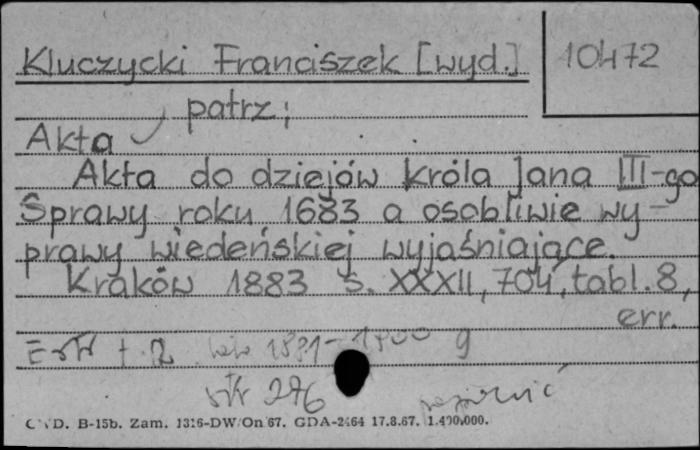 Kluczycki Franciszek [wyd.]
10472
patrz;
Akta
Akta do dziejów króla Jana III-go
Sprawy roku 1683 a osobliwie wy-
prawy wiedeńskiej wyjaśniające.
Kraków 1883 s. XXXII, 704, tabl. 8,
err.
t. 2 1881-1800 g
str 276
CWD. B-15b. Zam. 1316-DW/On/67. GDA-2464 17.8.67. 1.400.000.